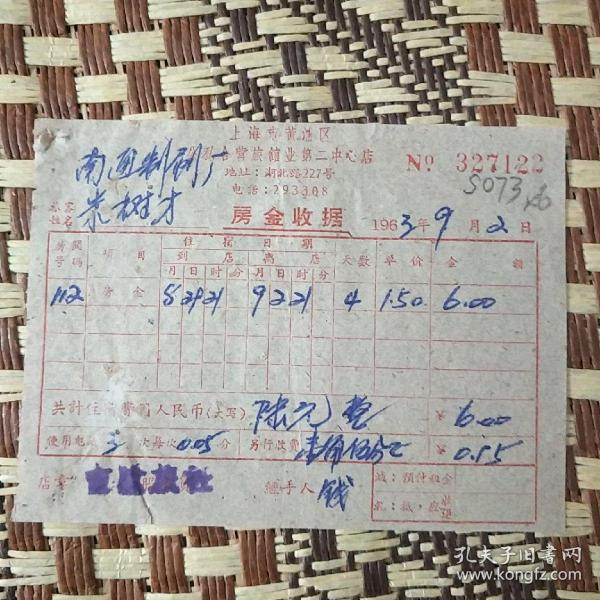 上海市黄浦区
公私合营旅馆业第二中心店
地址：湖北路227号
电话：293308
№ 327122
5073
南通制刷厂
旅客姓名 朱树才
房金收据
1963年9月2日
房间号码 项目 住宿日期 天数 单价 金额
到店 离店
月 日 时 分 月 日 时 分
112 房金 8 29 21 9 2 21 4 1.50 6.00
共计住宿费用人民币(大写) 陆元整 ¥ 6.00
使用电话 3 次每次 0.05 分 另行收费 ¥ 0.15
店章 经手人 钱
减：预付租金
孔夫子旧书网
www.kongfz.com